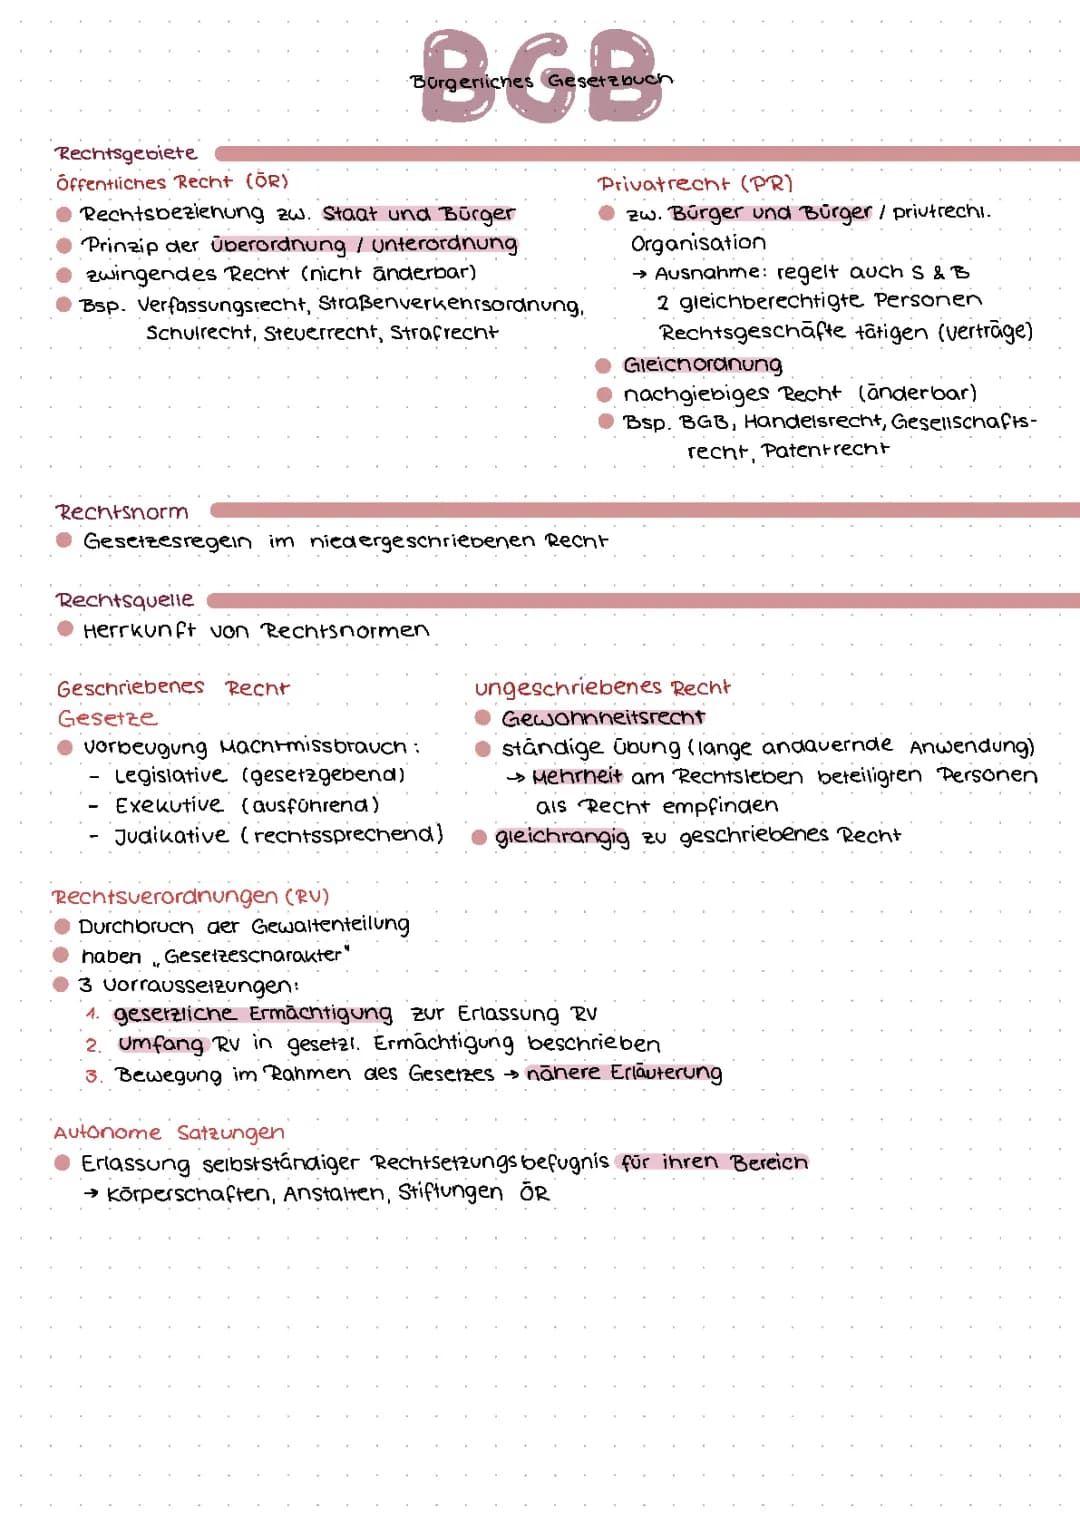 BGB
Bürgerliches Gesetzbuch
Rechtsgebiete
Öffentliches Recht (ÖR)
Rechtsbeziehung zw. Staat und Bürger
Prinzip der Überordnung / Unterordnung
zwingendes Recht (nicht änderbar)
Bsp. Verfassungsrecht, Straßenverkehrsordnung,
Schulrecht, Steuerrecht, Strafrecht
Privatrecht (PR)
zw. Bürger und Bürger / privtrechl.
Organisation
→ Ausnahme: regelt auch S & B
2 gleichberechtigte Personen
Rechtsgeschäfte tätigen (Verträge)
Gleichordnung
nachgiebiges Recht (änderbar)
Bsp. BGB, Handelsrecht, Gesellschafts-
recht, Patentrecht
Rechtsnorm
Gesetzesregeln im niedergeschriebenen Recht
Rechtsquelle
Herrkunft von Rechtsnormen
Geschriebenes Recht
Gesetze
Vorbeugung Machtmissbrauch:
- Legislative (gesetzgebend)
- Exekutive (ausführend)
- Judikative (rechtssprechend)
ungeschriebenes Recht
Gewohnheitsrecht
ständige Übung (lange andauernde Anwendung)
→ Mehrheit am Rechtsleben beteiligten Personen
als Recht empfinden
gleichrangig zu geschriebenes Recht
Rechtsverordnungen (RV)
Durchbruch der Gewaltenteilung
haben „Gesetzescharakter"
3 Vorraussetzungen:
1. gesetzliche Ermächtigung zur Erlassung RV
2. Umfang RV in gesetzl. Ermächtigung beschrieben
3. Bewegung im Rahmen des Gesetzes → nähere Erläuterung
Autonome Satzungen
Erlassung selbstständiger Rechtsetzungsbefugnis für ihren Bereich
→ Körperschaften, Anstalten, Stiftungen ÖR